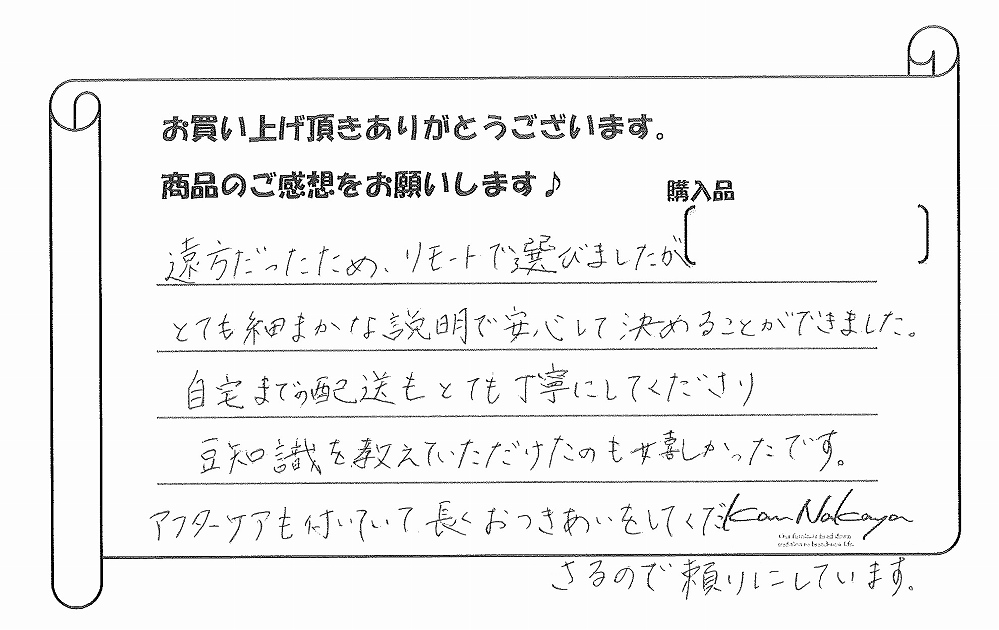 お買い上げ頂きありがとうございます。
商品のご感想をお願いします♪
購入品
遠方だったため、リモートで選びましたが
とても細まかな説明で安心して決めることができました。
自宅までの配送もとても丁寧にしてくださり
豆知識を教えていただけたのも嬉しかったです。
アフターケアも付いていて、長くおつきあいをしてくだ
Kan Nakaya
さるので頼りにしています。